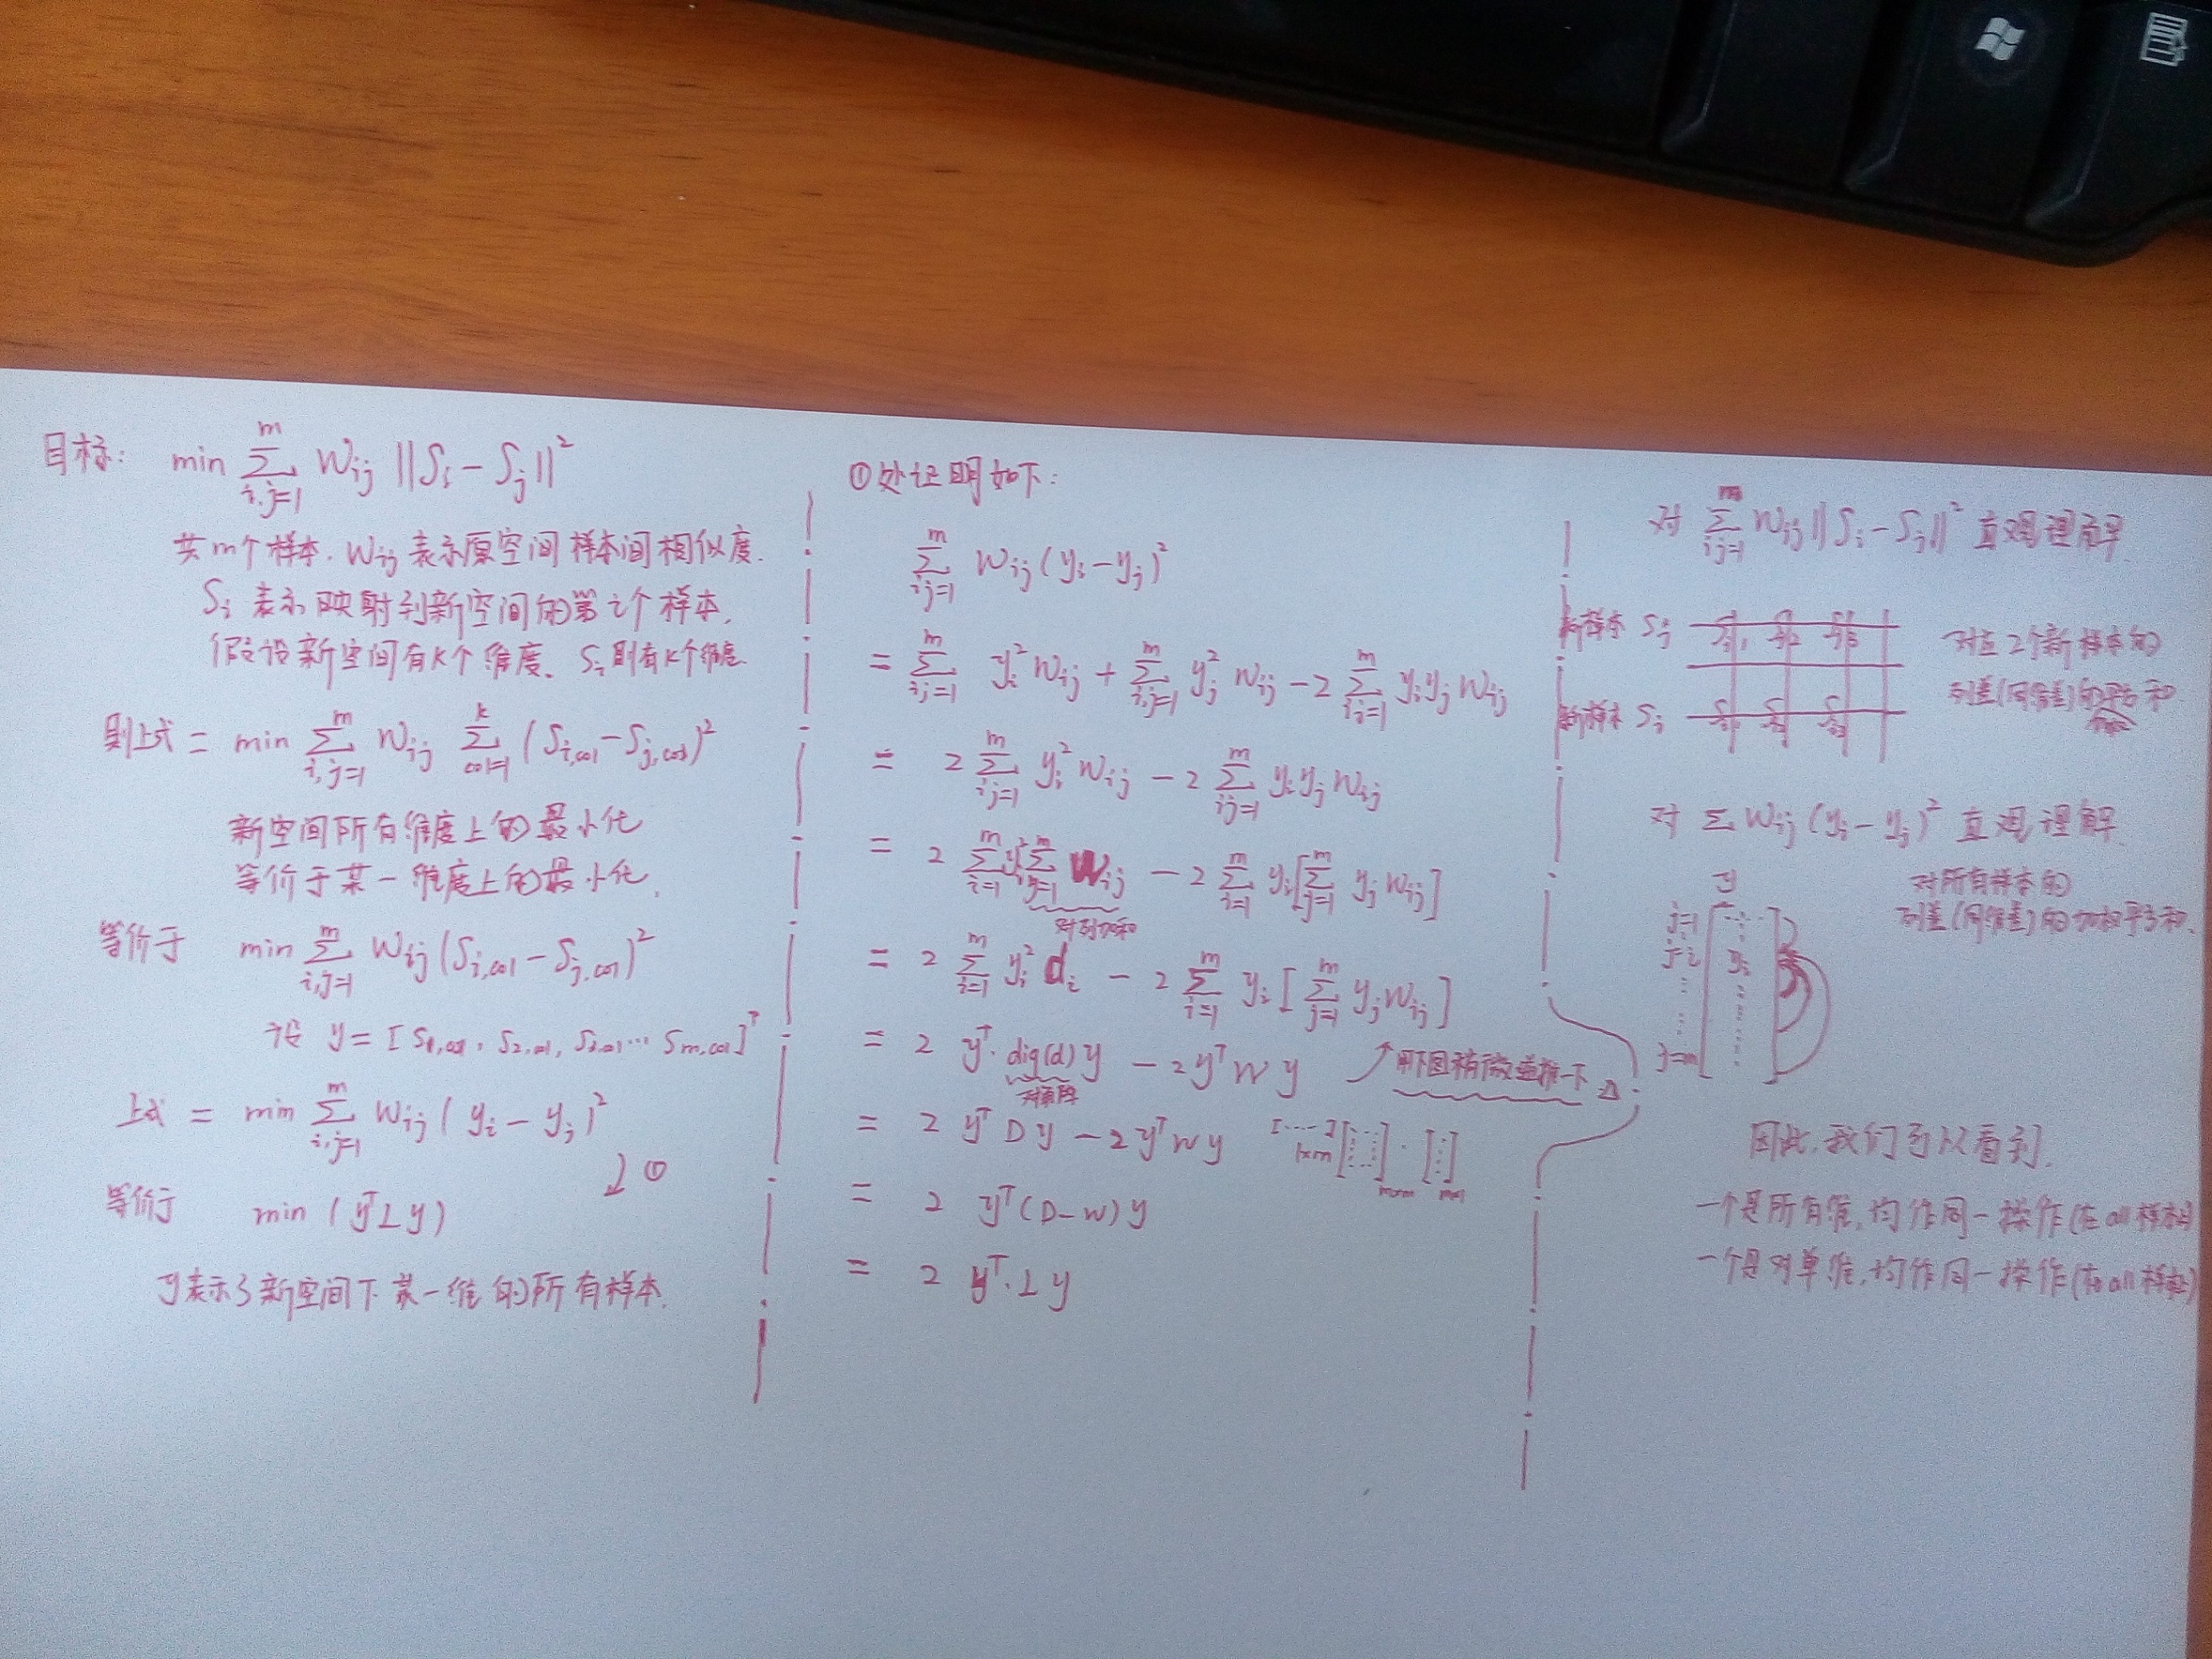 目标: min Σ_{i,j=1}^{m} W_{ij} ||S_i - S_j||²
共m个样本. W_{ij} 表示原空间样本间相似度.
S_i 表示映射到新空间的第i个样本.
假设新空间有K个维度. S_i则有K个维度.
则上式 = min Σ_{i,j=1}^{m} W_{ij} Σ_{col=1}^{k} (S_{i,col} - S_{j,col})²
新空间所有维度上的最小化
等价于某一维度上的最小化.
等价于 min Σ_{i,j=1}^{m} W_{ij} (S_{i,col} - S_{j,col})²
设 y = [S_{1,col}, S_{2,col}, S_{3,col} ... S_{m,col}]^T
上式 = min Σ_{i,j=1}^{m} W_{ij} (y_i - y_j)²
①
等价于 min (y^T L y)
y表示了新空间下某一维的所有样本.
①处证明如下:
Σ_{ij=1}^{m} W_{ij} (y_i - y_j)²
= Σ_{ij=1}^{m} y_i² W_{ij} + Σ_{i,j=1}^{m} y_j² W_{ij} - 2 Σ_{ij=1}^{m} y_i y_j W_{ij}
= 2 Σ_{ij=1}^{m} y_i² W_{ij} - 2 Σ_{ij=1}^{m} y_i y_j W_{ij}
= 2 Σ_{i=1}^{m} y_i² Σ_{j=1}^{m} W_{ij} - 2 Σ_{i=1}^{m} y_i [Σ_{j=1}^{m} y_j W_{ij}]
对列加和
= 2 Σ_{i=1}^{m} y_i² d_i - 2 Σ_{i=1}^{m} y_i [Σ_{j=1}^{m} y_j W_{ij}]
= 2 y^T · dig(d) y - 2 y^T W y ↗ 用下图稍微推一下 Δ
对角阵
= 2 y^T D y - 2 y^T W y [·····] 1×m [ ] m×m · [ ] m×1
= 2 y^T (D - W) y
= 2 y^T · L y
对 Σ_{ij=1}^{m} W_{ij} ||S_i - S_j||² 直观理解.
新样本 S_j
对应2个新样本的
列差(同维差)的平方和
新样本 S_i
对 Σ W_{ij} (y_i - y_j)² 直观理解.
y
对所有样本的
列差(同维差)的加权平方和.
j=1
j=i y_i
j=m
因此,我们可以看到.
一个是所有维,均作同一操作(在all样本)
一个是对单维,均作同一操作(在all样本)